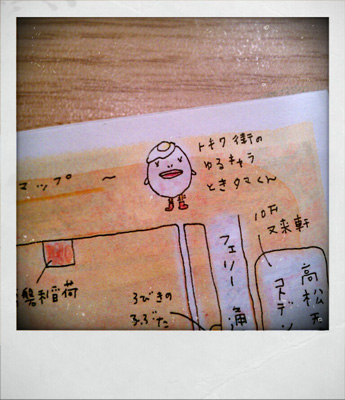 トキワ街の
ゆるキャラ
ときタマくん
マップ 〜
又来軒
フェリー通
高松
コトデン
利稲荷
3びきの
こぶた